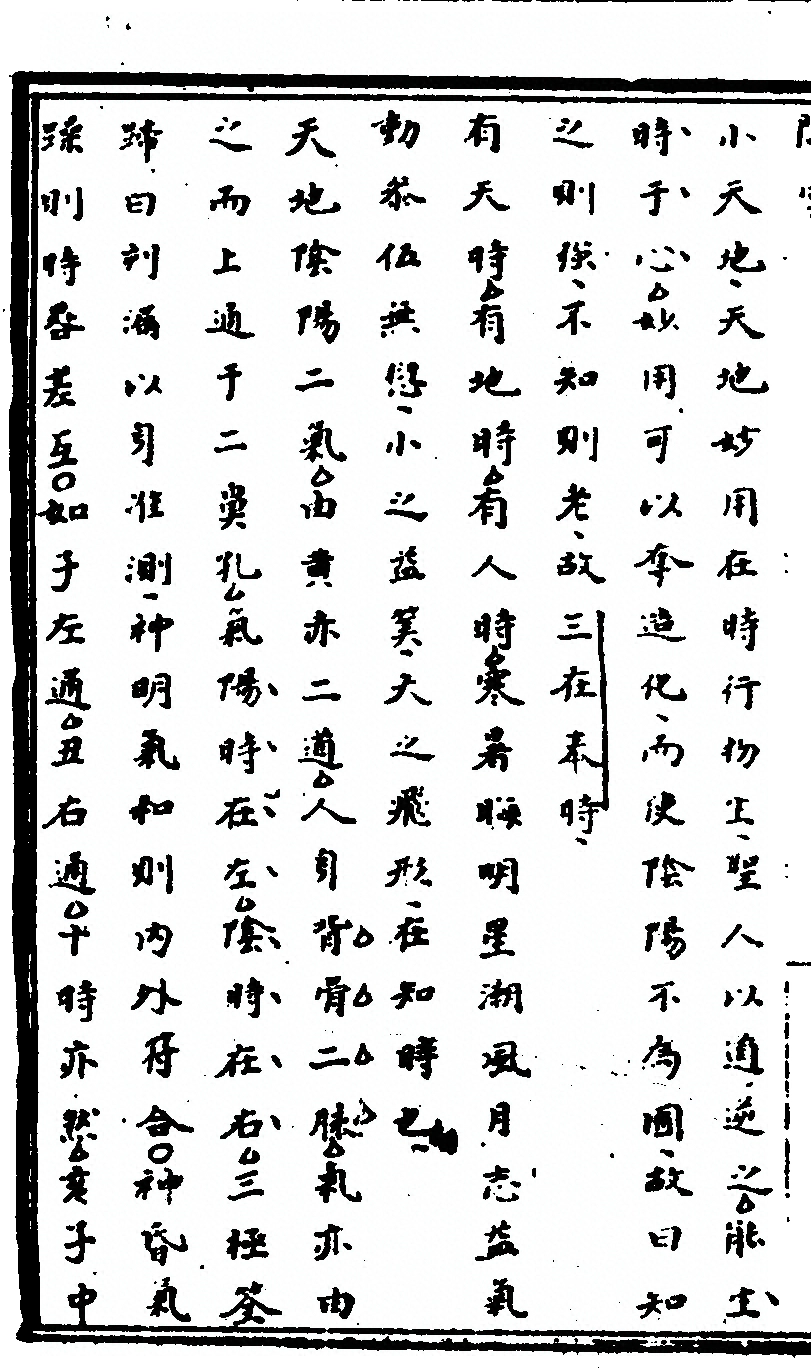 小天地天地妙用在時行物生聖人以道逆之能主
時于心妙用可以奪造化而使陰陽不為圄故曰知
之則強不知則老故三在奉時
有天時有地時有人時寒暑晦明星潮風月志益氣
動叅伍無愆小之益筭大之飛形在知時也
天地陰陽二氣由黄赤二道人身背骨二脉氣亦由
之而上通于二鼻孔氣陽時在左陰時在右三極筌
蹄曰刻漏以身准測神明氣和則內外符合神昏氣
躁則時晷差互如子左通丑右通十時亦然亥子中